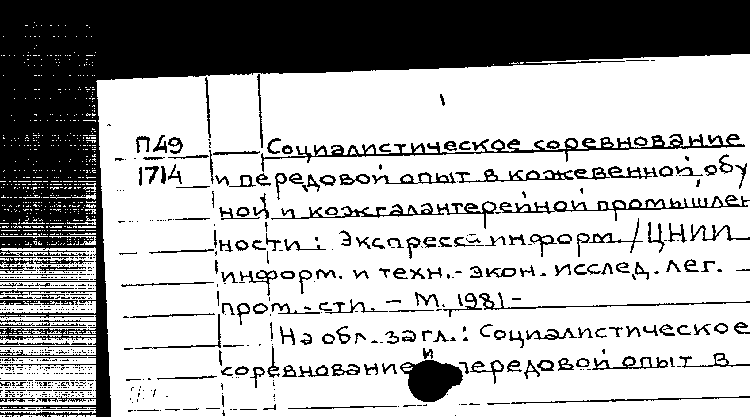 П49 Социалистическое соревнование
1714 и передовой опыт в кожевенной, обу
ной и кожгалантерейной промышлен
ности: Экспресс-информ./ЦНИИ
информ. и техн.-экон. исслед. лег.
пром.-сти. – М., 1981 –
На обл. загл.: Социалистическое
соревнование и передовой опыт в